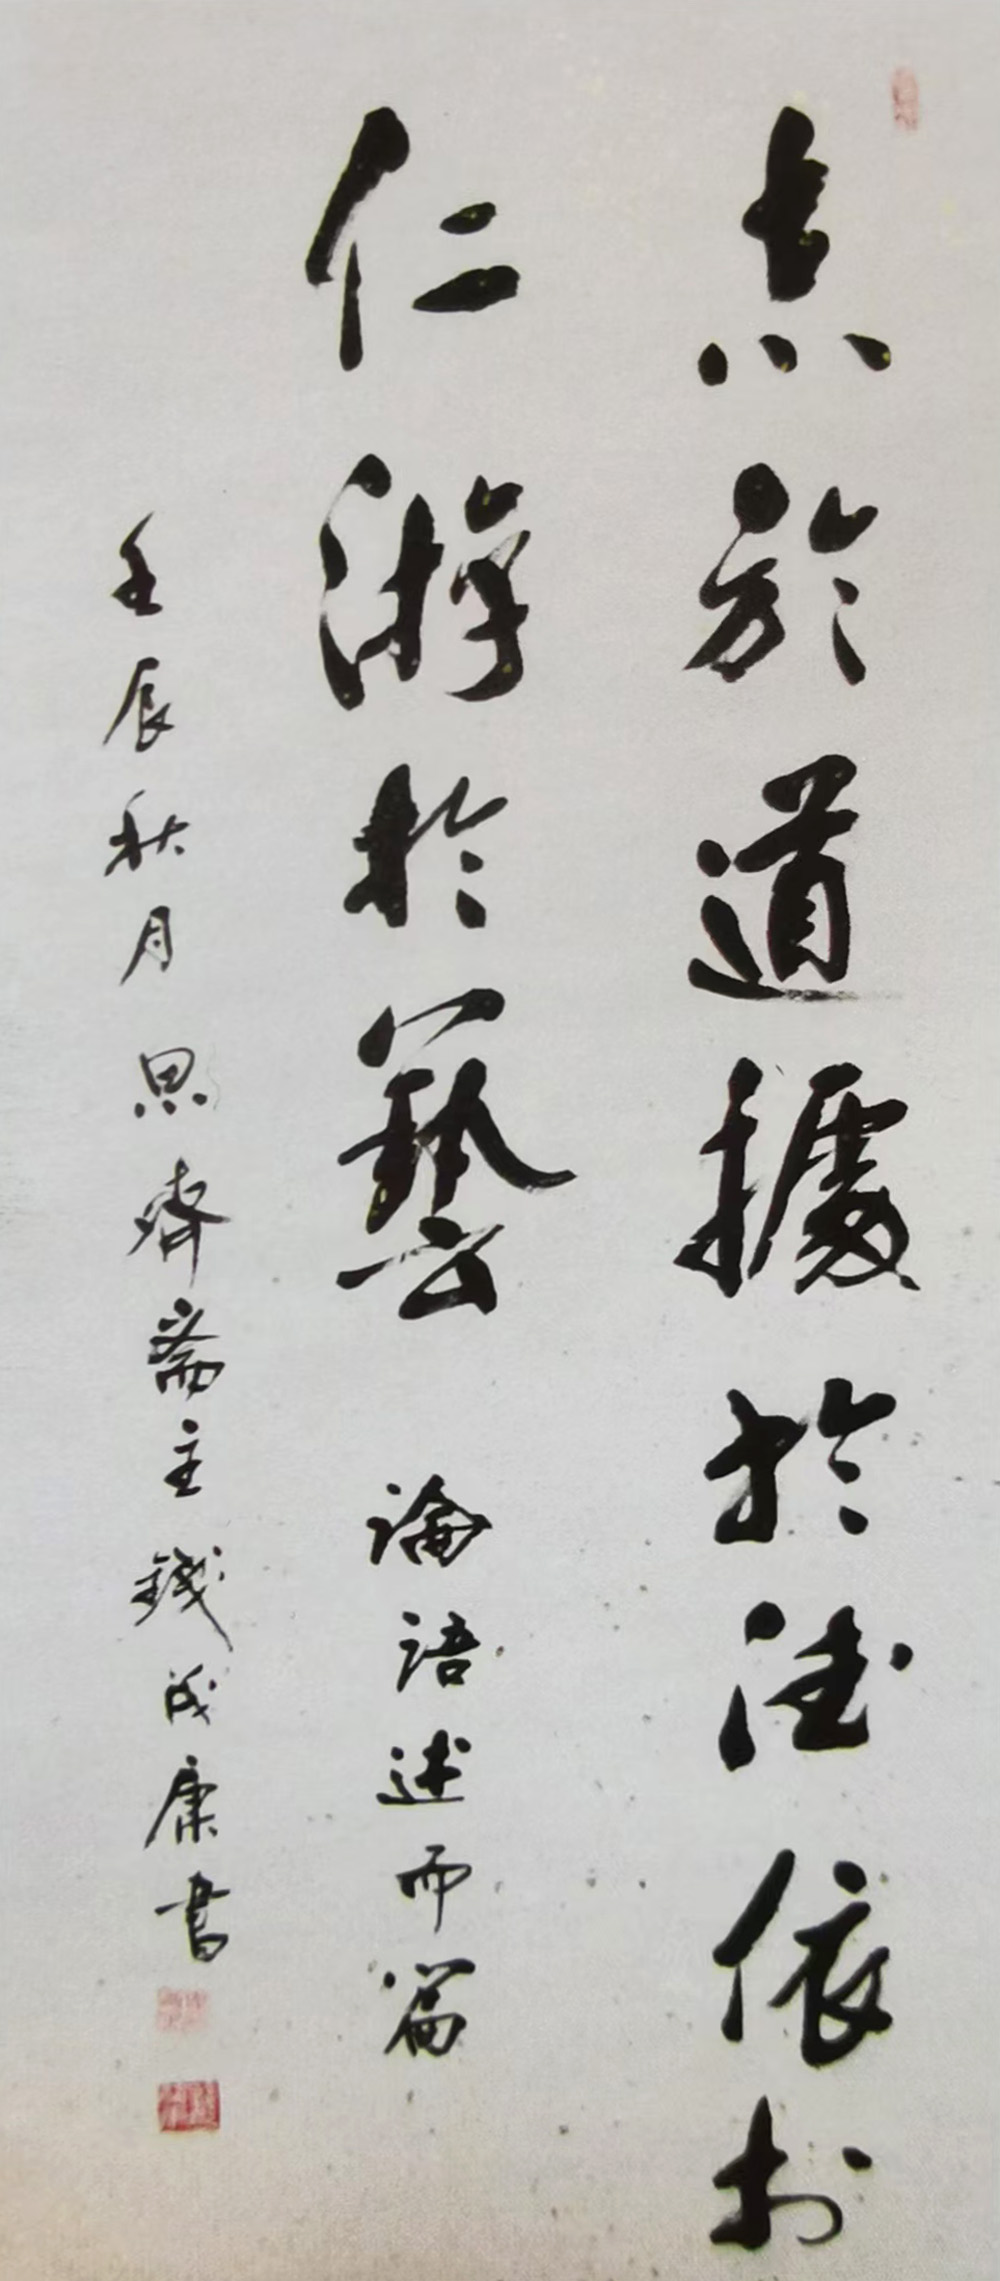 志於道據於德依於
仁游於藝 論語述而篇
壬辰秋月思齊斋主錢成康書